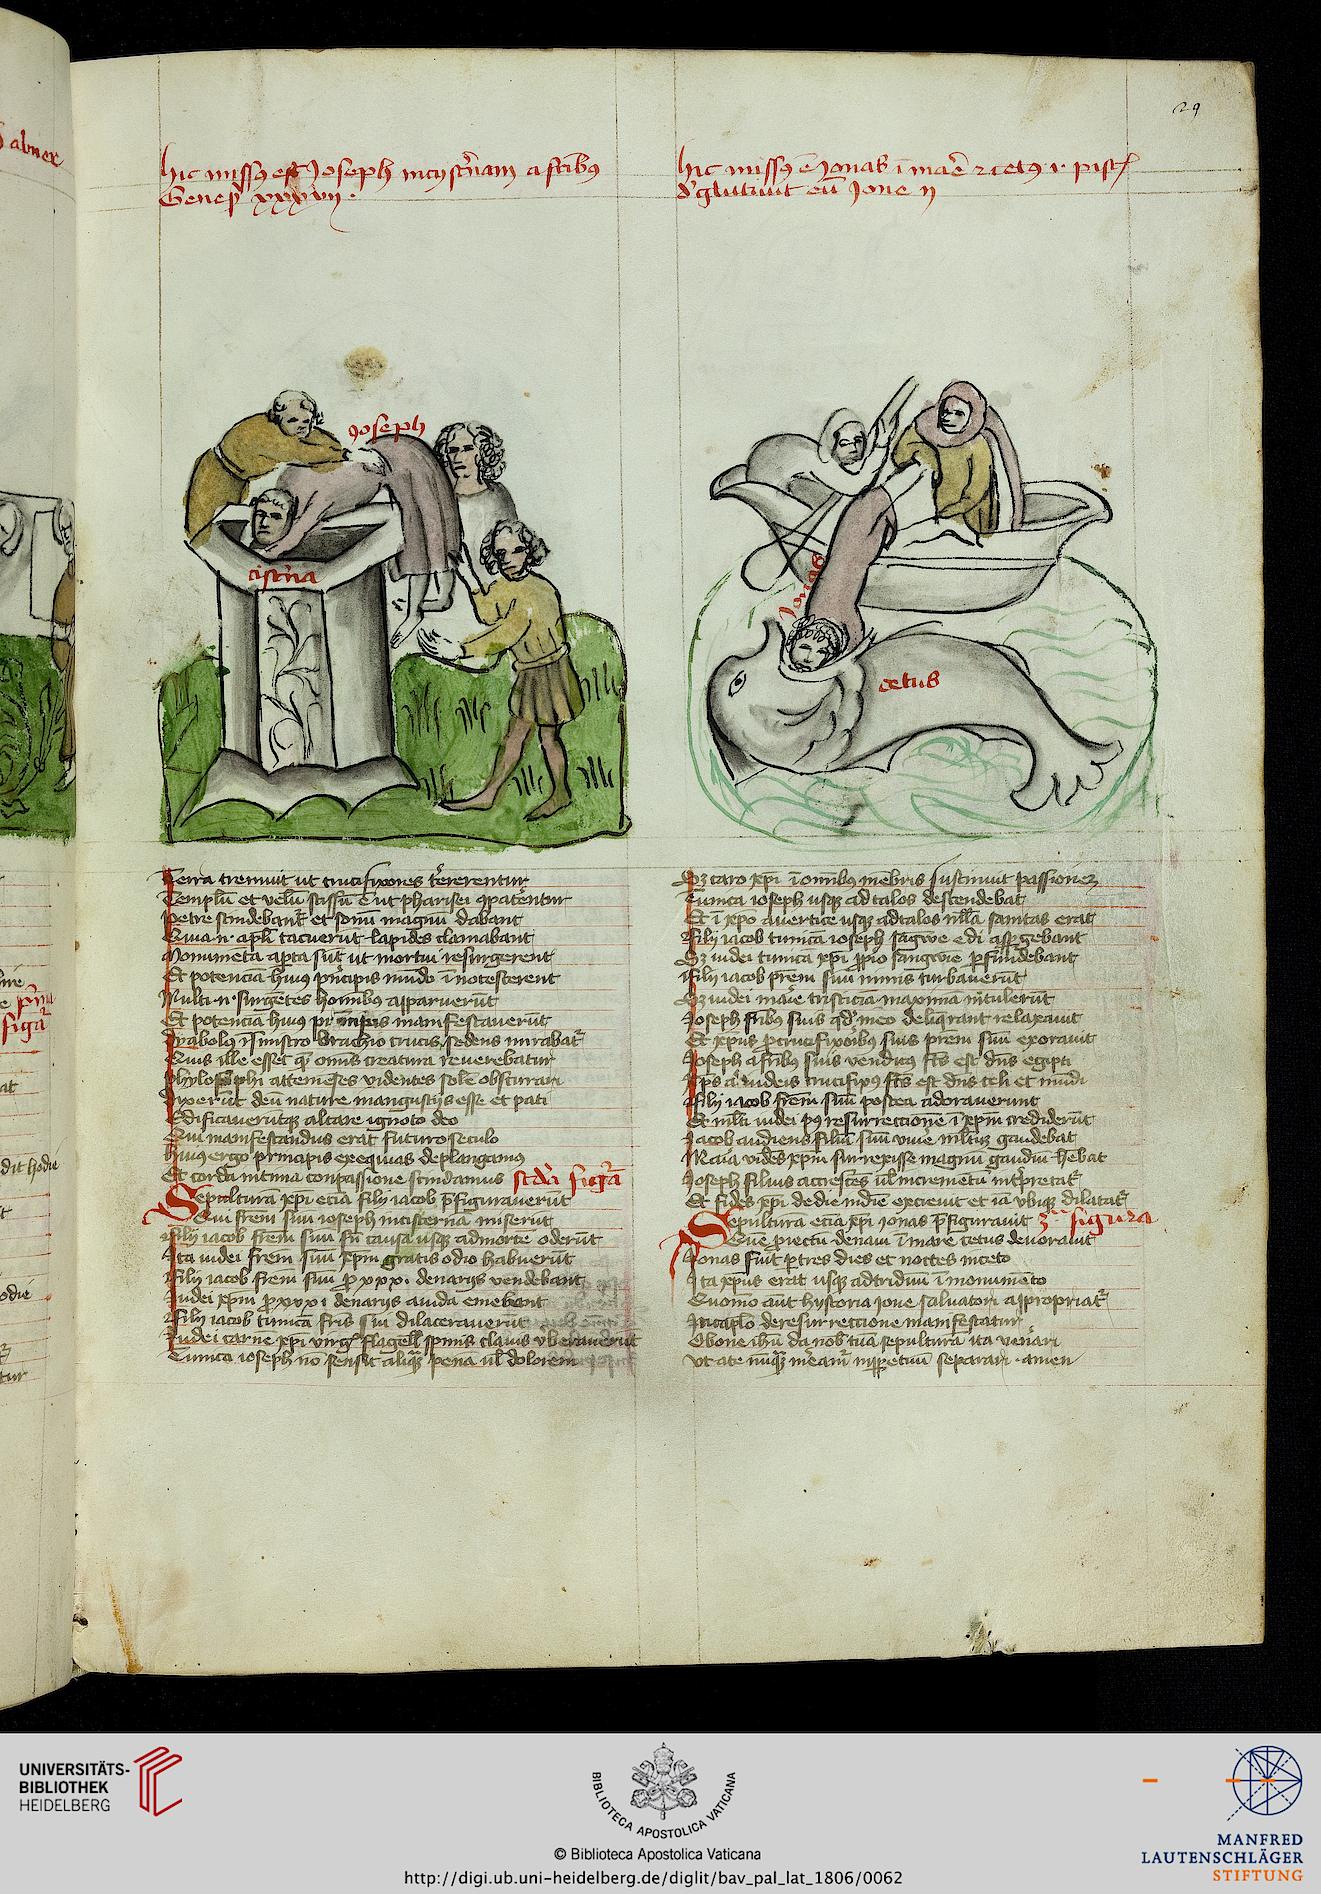 29
d abner
hic missꝰ est Joseph in cisternam a fribꝰ
Genes xxxvii.
hic missꝰ e Jonas i mare et cetꝰ i pisc
deglutiuit eu Jone ij
Joseph
cisterna
Jonas
cetus
Terra tremuit ut crucifixores terrerentur
Templu et velu scissu e ut pharisei
Petre scindebant et sonu magnu dabant
Quia n apli tacuerut lapides clamabant
Monumeta apta sut ut mortui resurgerent
Et potencia huius principis mudo inotescerent
Multi n surgetes hominibꝰ apparuerut
Et potencia huius principis manifestauerut
Dyabolus i sinistro brachio crucis sedens mirabatr
Quis ille esset que omnis creatura reuerebatur
Phylosophi athenieses videntes sole obscurari
Dixerut deu nature in angustijs esse et pati
Edificauerutque altare ignoto deo
Qui manifestandus erat futuro seculo
Huius ergo principis exequias deplangamus
Et corda intima conpassione scindamus scda figura
Sepultura xpi ecia filij iacob pfigurauerut
Qui frem suu ioseph in cisterna miserut
Filij iacob frem suu sn causa usque ad morte oderut
Ita iudei frem suu xpm gratis odio habuerut
Filij iacob frem suu p xxx denarijs vendebant
Iudei xpm p xxx denarijs a iuda emebant
Filij iacob tunica fris sui dilacerauerut
Iudei carne xpi virg flagell spinis clauis vlnerauerut
Tunica ioseph no sensit aliqua pena ul dolorem
Sz caro xpi i omnibꝰ mebris sustinuit passionez
Tunica ioseph usque ad talos descendebat
Et i xpo a uertice usque ad talos nlla sanitas erat
Filij iacob tunica ioseph sagwine edi aspgebant
Sz iudei tunica xpi pprio sangwine pfundebant
Filij iacob prem suu nimis turbauerut
Sz iudei marie tristicia maxima intulerut
Joseph fribus suis qd in eo deliqrant relaxauit
Et xpus p crucifixoribus suis prem suu exorauit
Joseph a fribus suis venditus fts est dns egipti
Xps a iudeis crucifixꝰ fts est dns celi et mudi
Filij iacob frem suu postea adorauerunt
Et mlti iudei pꝰ resurrectione i xpm crediderut
Jacob audiens filiu suu viue mltu gaudebat
Maria vides xpm surrexisse magnu gaudiu hebat
Joseph filius accrescens ul incremetu intrpretatr
Et fides xpi de die in die excreuit et ia ubique dilatatr
Sepultura ecia xpi Jonas pfigurauit 3a figura
Que proiectu de naui i mare cetus deuorauit
Jonas fuit p tres dies et noctes in ceto
Ita xpus erat usque ad triduu i monumeto
Quomo aut hystoria ione saluatori appropriatr
In caplo de resurrectione manifestatur
O bone ihu da nob tua sepultura ita venerari
Ut a te nuqua in perpetuu separari amen
UNIVERSITÄTS-
BIBLIOTHEK
HEIDELBERG
BIBLIOTECA APOSTOLICA VATICANA
© Biblioteca Apostolica Vaticana
http://digi.ub.uni-heidelberg.de/diglit/bav_pal_lat_1806/0062
MANFRED
LAUTENSCHLÄGER
STIFTUNG